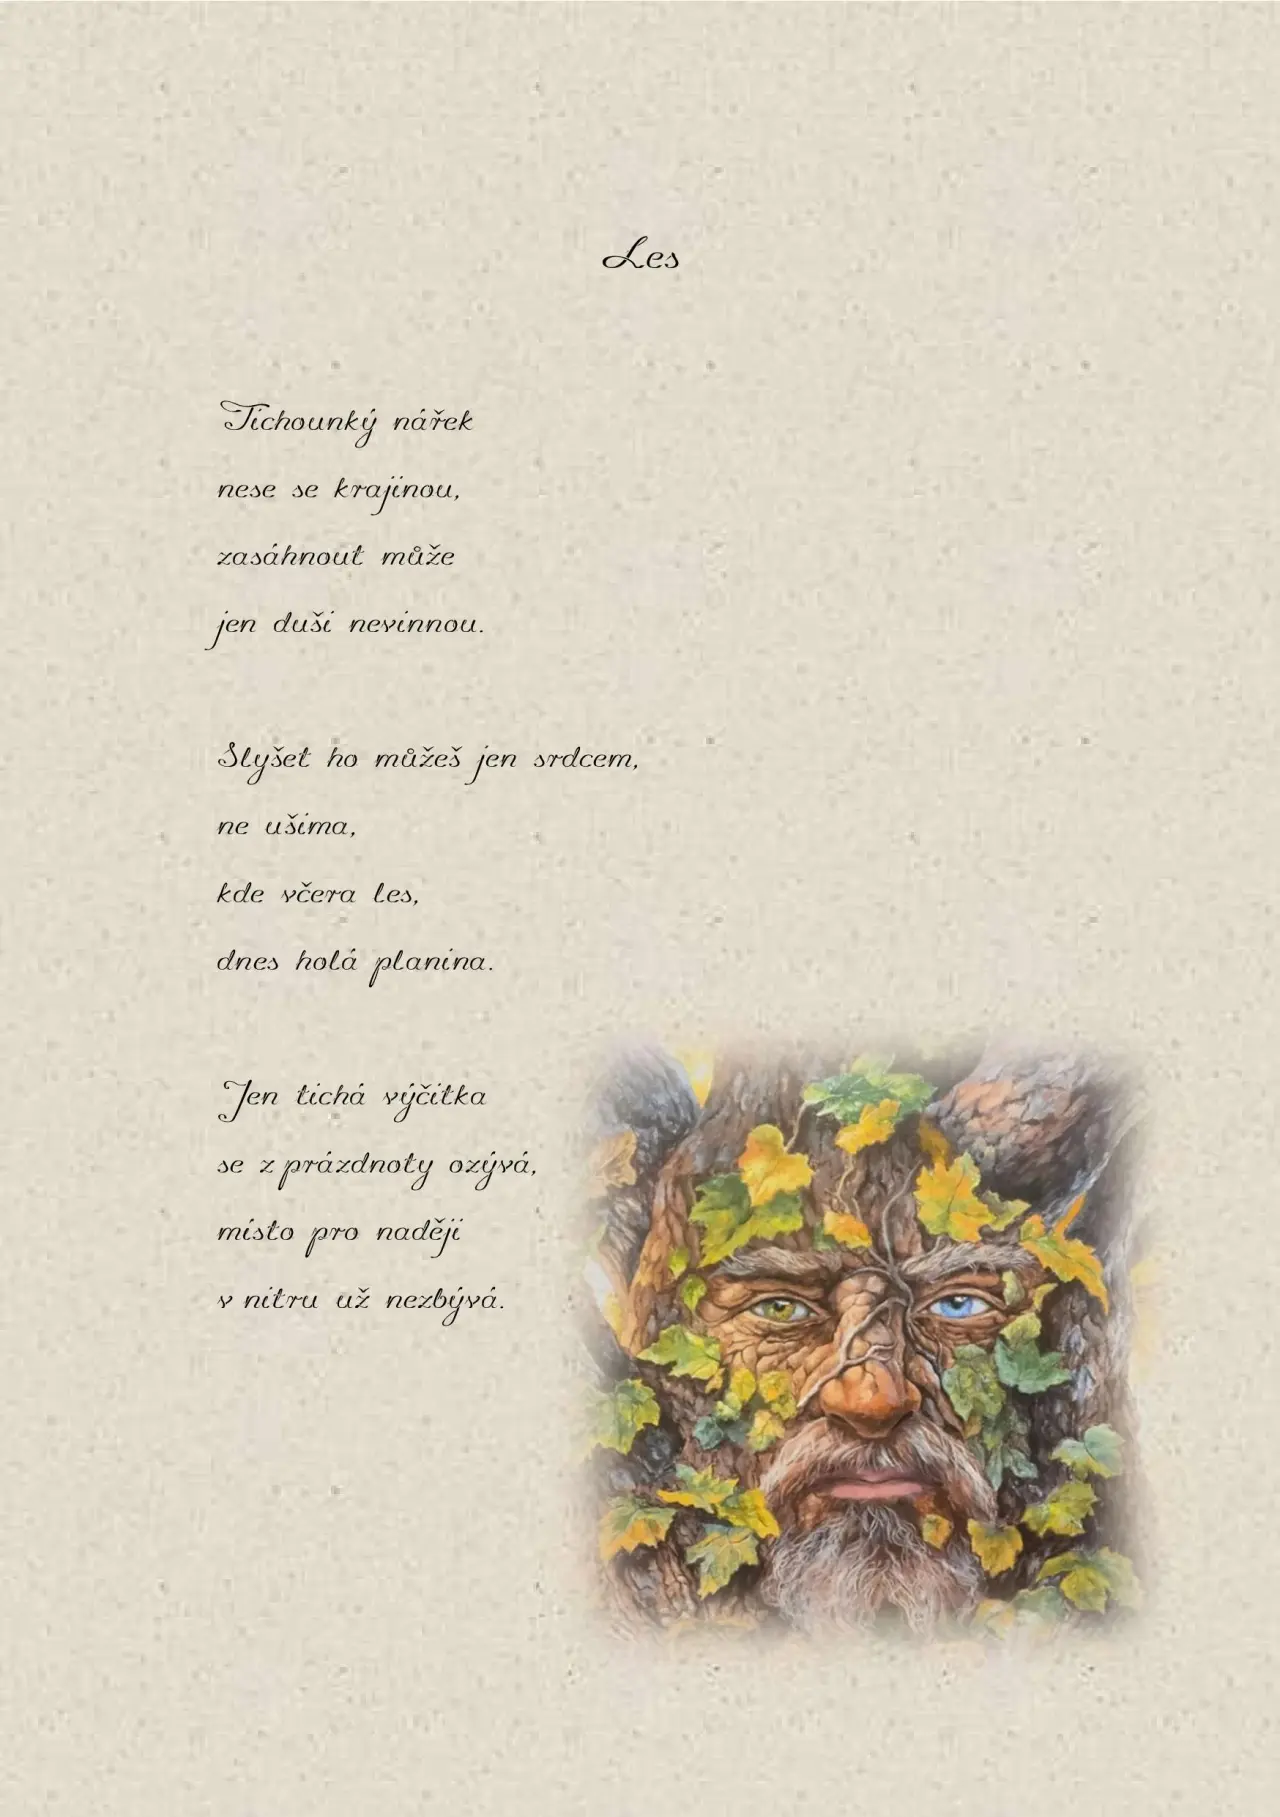 Les
Tichounký nářek
nese se krajinou,
zasáhnout může
jen duši nevinnou.
Slyšet ho můžeš jen srdcem,
ne ušima,
kde včera les,
dnes holá planina.
Jen tichá výčitka
se z prázdnoty ozývá,
místo pro naději
v nitru už nezbývá.